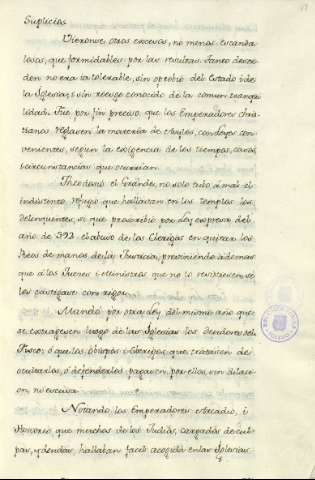 Suplicios.
Vieronse otros excesos, no menos escanda
losos, que formidables por las resultas. Tanto desor
den no era ya tolerable, sin oprobio del Estado i de
la Iglesia; i sin riesgo conocido de la comun tranqui
lidad. Fue por fin preciso, que los Emperadores chris
tianos reglasen la materia de Asylos, con leyes con
venientes, segun la exigencia de los tiempos, casos
i circunstancias que ocurrian.
Theodosio el Grande, no solo tubo à mal el
indistinto refugio que hallaban en los templos los
delinquentes, si que proscribió por Ley expresa del
año de 392. el abuso de los Clerigos en quitar los
Reos de manos de la Justicia, previniendo ademas
que a los Jueces i Ministros que no lo resistiesen, se
les castigase con rigor.
Mandò por otra Ley del mismo año que
se extragesen luego de las Iglesias los deudores del
Fisco; ò que los Obispos i Clerigos, que tratasen de
ocultarlos, ò defenderlos pagasen por ellos, sin dilacion
ni escusa.
Notando los Emperadores Arcadio, i
Honorio que muchos de los Judios, cargados de cul
pas, y deudas, hallaban facil acogida en las Iglesias